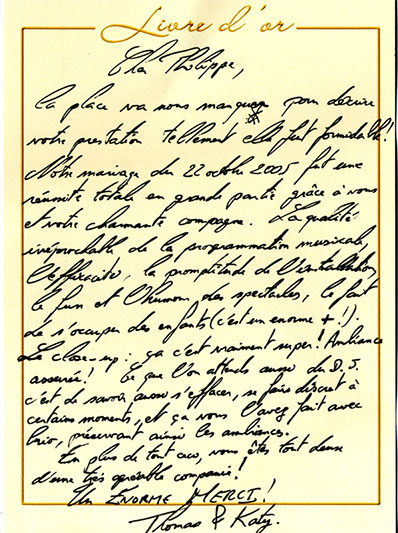 Livre d'or
Cher Philippe,
la place va nous manquer pour décrire
votre prestation tellement elle fut formidable!
Notre mariage du 22 octobre 2005 fut une
réussite totale en grande partie grâce à vous
et votre charmante compagne. La qualité
irréprochable de la programmation musicale,
l'efficacité, la promptitude de l'installation,
le fun et l'humour des spectacles, le fait
de s'occuper des enfants (c'est un énorme + !).
Le close-up : ça c'est vraiment super! Ambiance
assurée! Ce que l'on attends aussi du D.J.
c'est de savoir aussi s'effacer, se faire discret à
certains moments, et ça vous l'avez fait avec
brio, préservant ainsi les ambiances.
En plus de tout ceci, vous êtes tout deux
d'une très agréable compagnie!
Un ENORME MERCI!
Thomas & Katy.